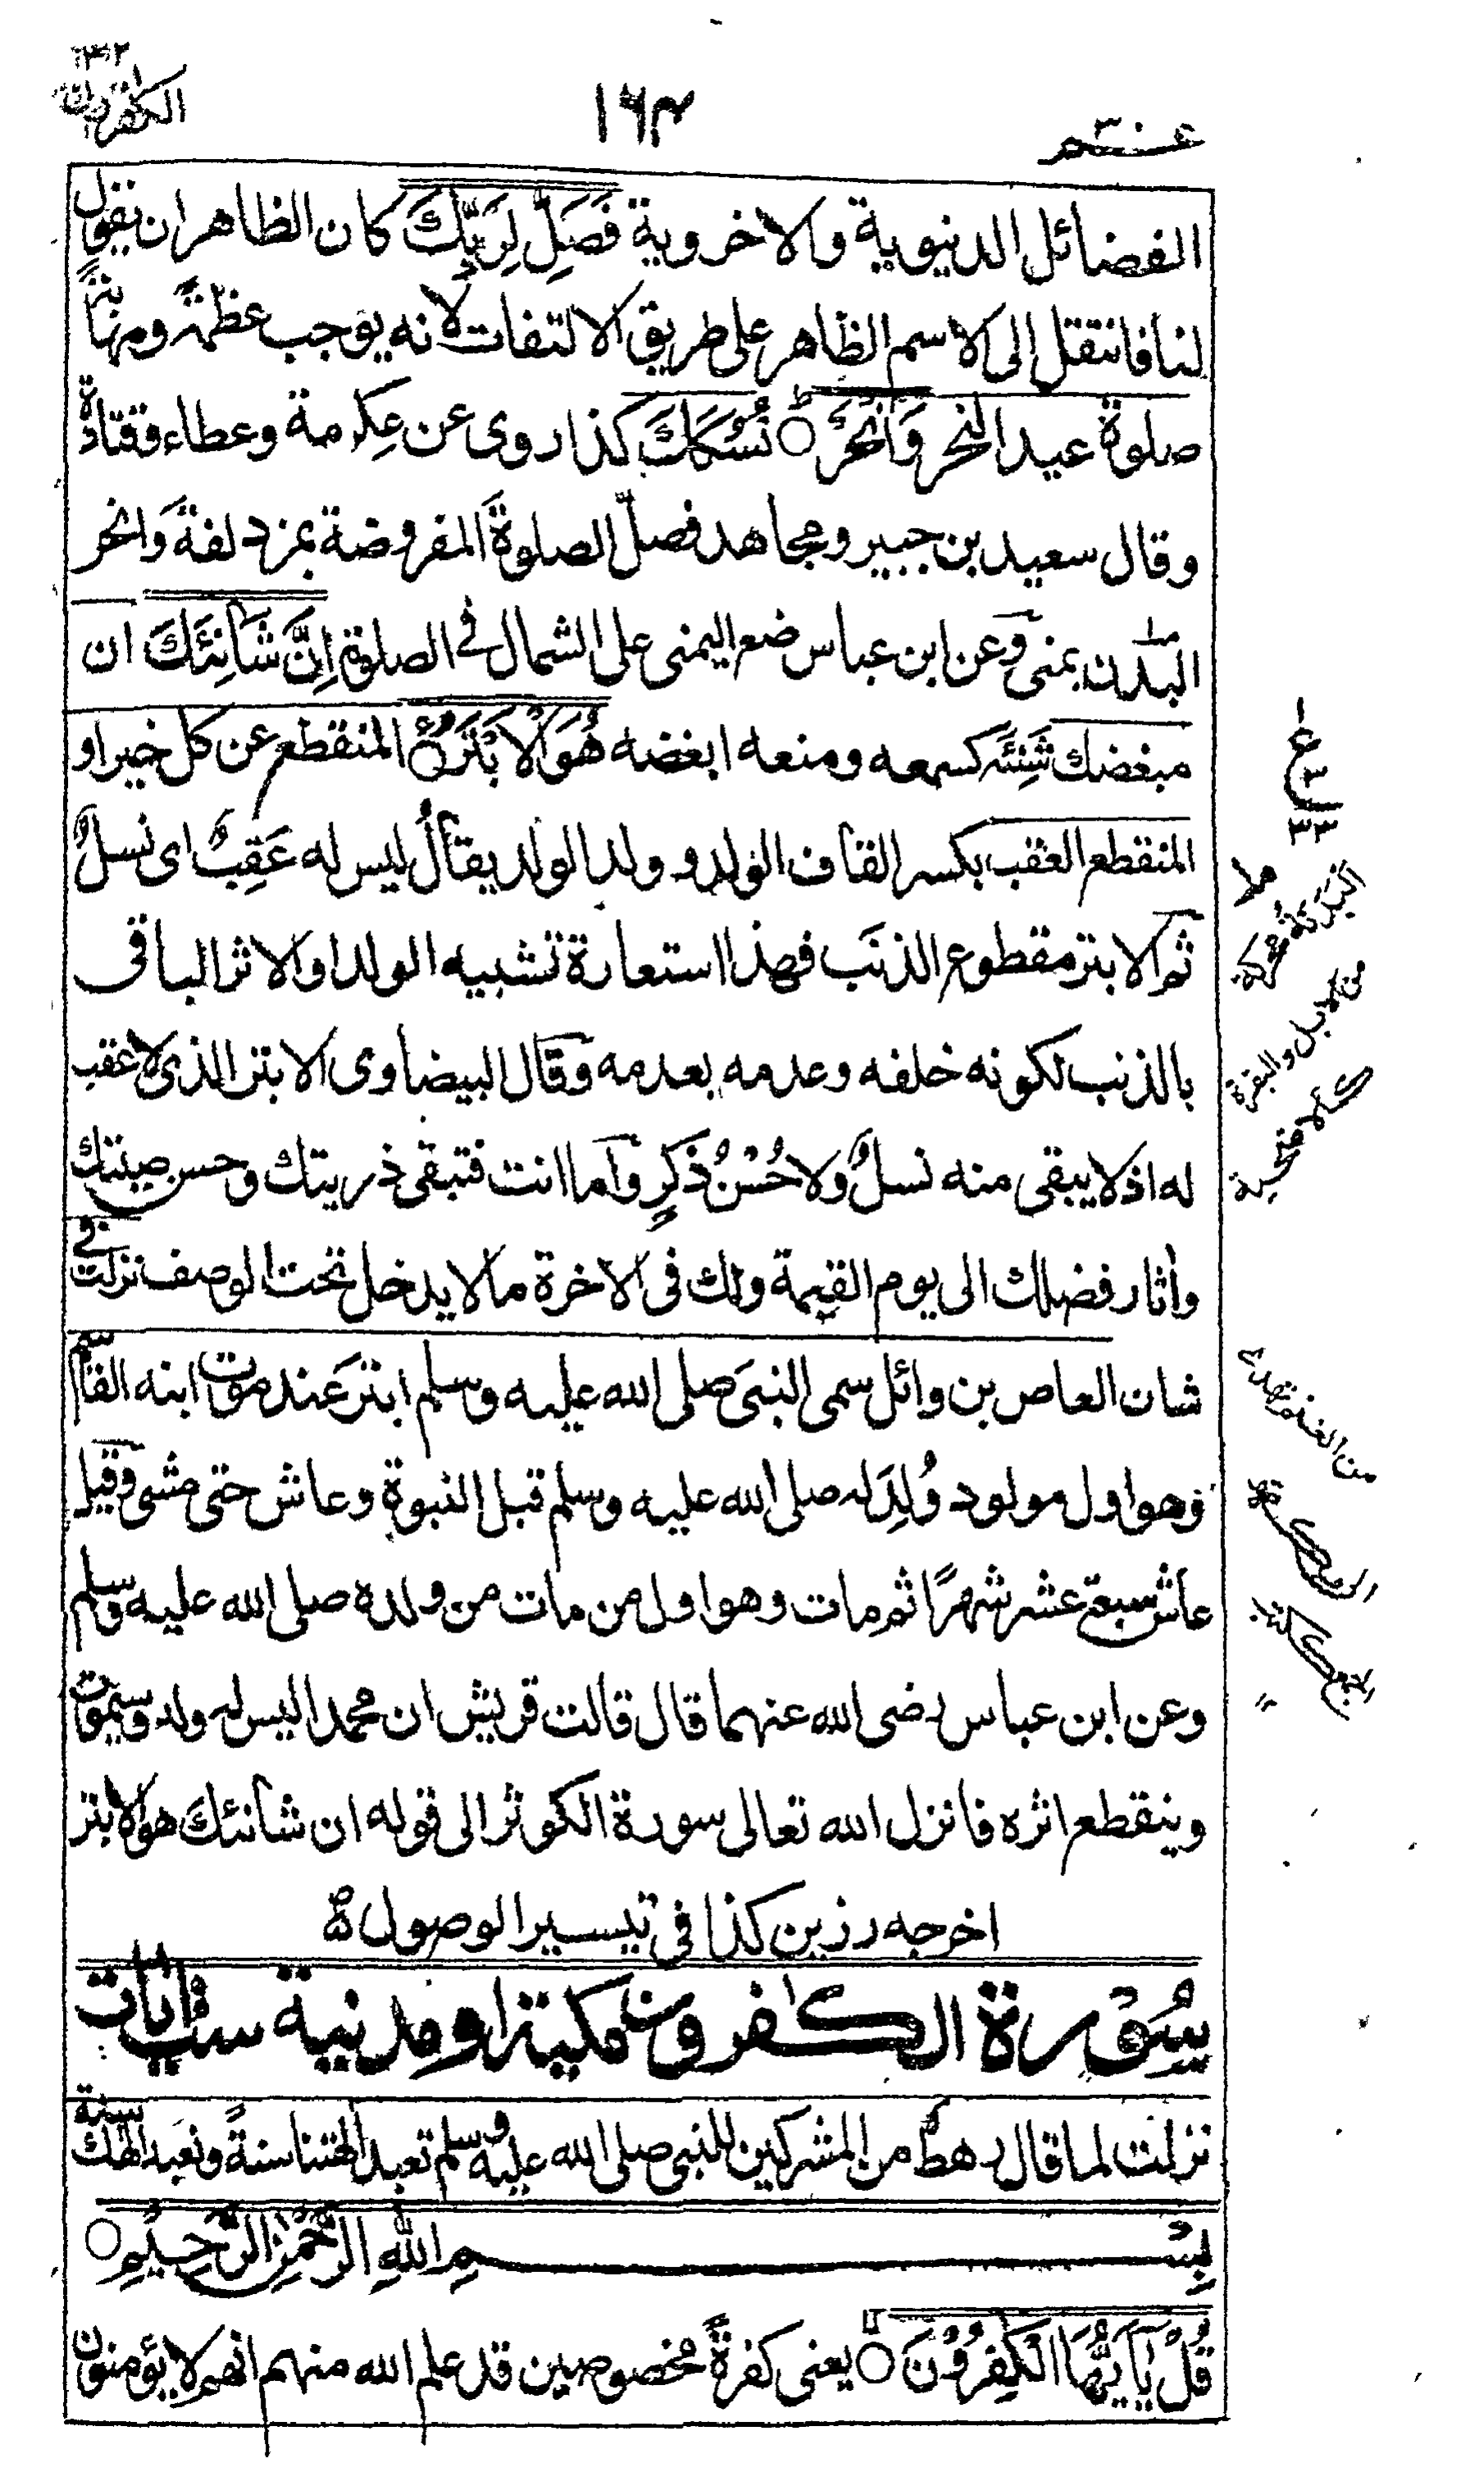 عـــم ٣٠
١٦٣
الكفرون ١٠٩
الفضائل الدنيوية والاخروية فَصَلِّ لِرَبِّكَ كان الظاهر ان يقول
لنا فانتقل الى الاسم الظاهر على طريق الالتفات لانه يوجب عظمةً ومهابةً
صلوة عيد النحر وَانْحَرْ ○ نُسُكَكَ كذا روى عن عِكرمة وعطاء وقتادة
وقال سعيد بن جبير ومجاهد فصلّ الصلوةَ المفروضة بمزدلفة وَانحر
البُدْن بمنى وعن ابن عباس ضع اليمنى على الشمال فى الصلوة اِنَّ شَانِئَكَ ان
مبغضك شَنِئَه كسمعه ومنعه ابغضه هُوَ الْاَبْتَرُ ○ المنقطع عن كل خير او
المنقطع العقب بكسر القاف الولد وولد الولد يقال ليس له عَقِبٌ اى نسلٌ
ثم الابتر مقطوع الذنَب فهذا استعارة تشبيه الولد او الاثر الباقى
بالذنب لكونه خلفه وعدمه بعدمه وقال البيضاوى الابتر الذى لا عقب
له اذ لا يبقى منه نسلٌ ولا حُسْنُ ذكرٍ واما انت فتبقى ذريتك وحسن صيتك
وأثار فضلك الى يوم القيمة ولك فى الاخرة ما لا يدخل تحت الوصف نزلت فى
شان العاص بن وائل سمى النبىَ صلى الله عليه وسلم ابتر عند موت ابنه القاسم
وهو اول مولود وُلِدَ له صلى الله عليه وسلم قبل النبوة وعاش حتى مشى وقيل
عاش سبعة عشر شهرًا ثم مات وهو اول من مات من ولده صلى الله عليه وسلم
وعن ابن عباس رضى الله عنهما قال قالت قريش ان محمدا ليس له ولد وسيموت
وينقطع اثره فانزل الله تعالى سورة الكوثر الى قوله ان شانئك هو الابتر
اخرجه رزين كذا فى تيسير الوصول
سُوْرة الكٰفرون مكية او مدنية ست اٰيات
نزلت لما قال رهطٌ من المشركين للنبى صلى الله عليه وسلم تعبد الهتنا سنةً ونعبد الهك سنة
بِسْمِ اللهِ الرَّحْمٰنِ الرَّحِيْمِ ○
قُلْ يٰٓاَيُّهَا الْكٰفِرُوْنَ ○ يعنى كفرةً مخصوصين قد علم الله منهم انهم لا يؤمنون
ع
٣٣
من الابل والبقرة